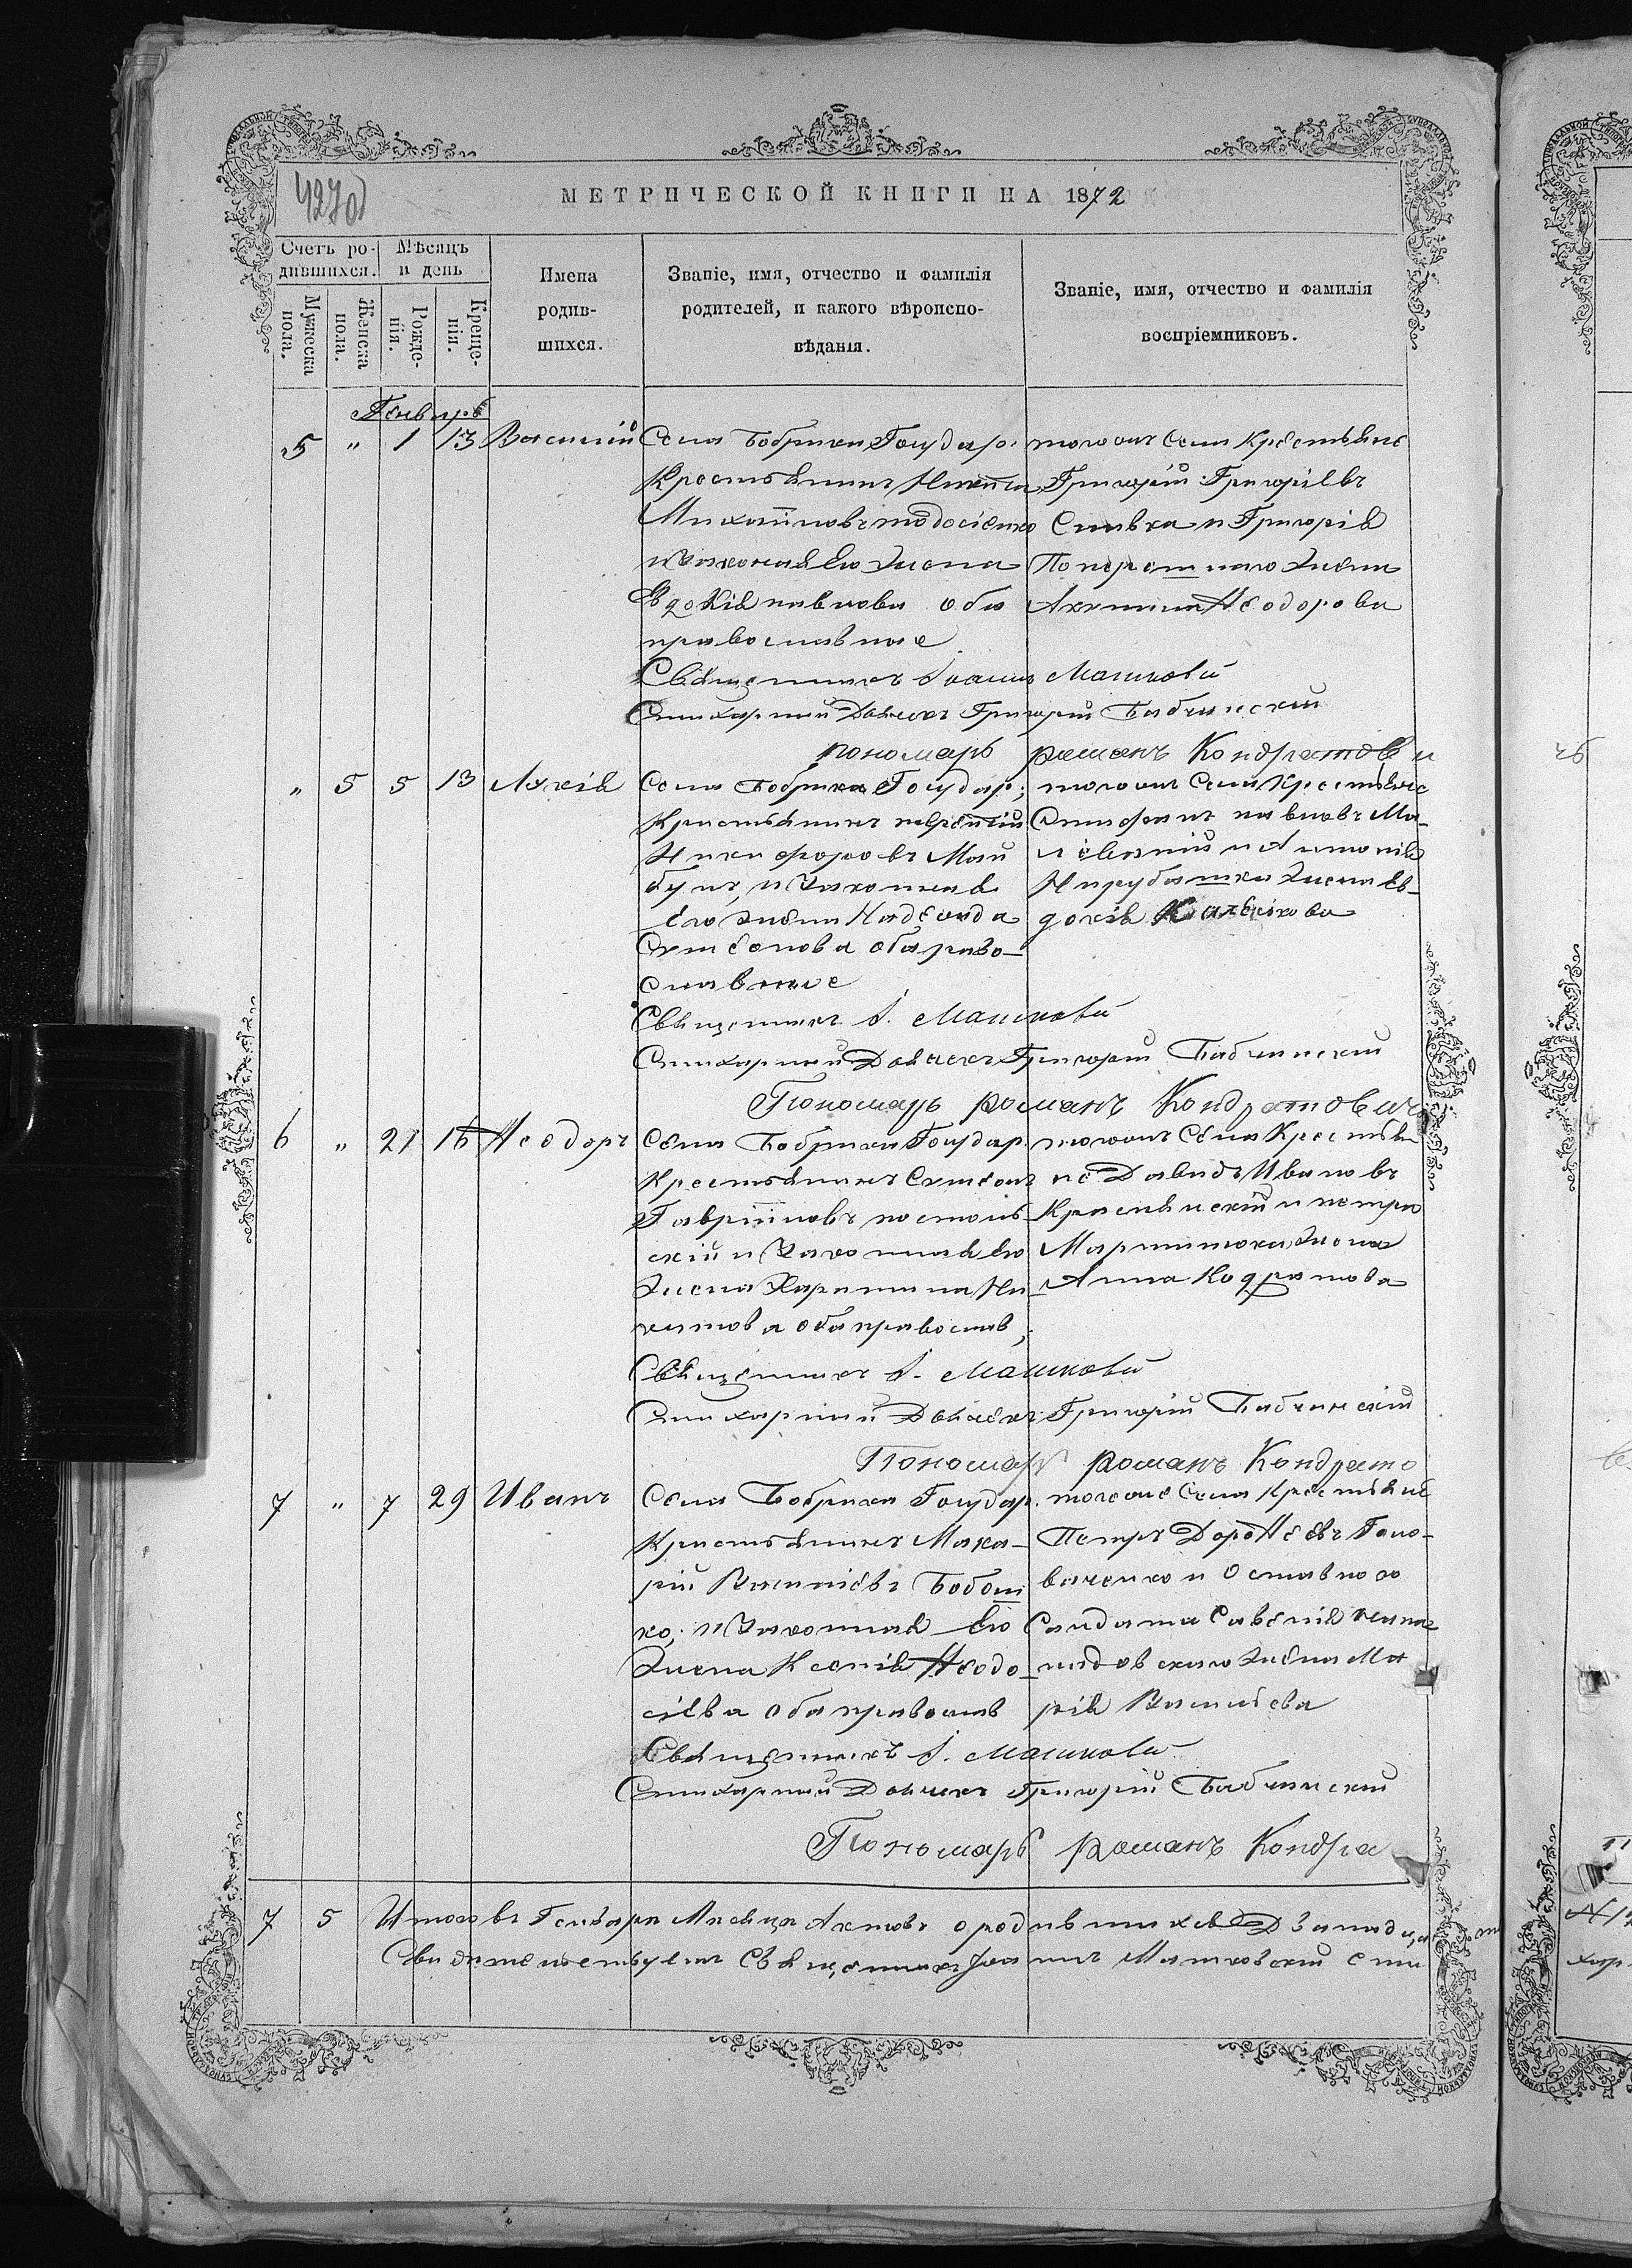 4270
МЕТРИЧЕСКОЙ КНИГИ НА 1872
Счетъ ро-
дившихся.
Мужеска
пола.
Женска
пола.
Мѣсяцъ
и день
Рожде-
нія.
Креще-
нія.
Имена
родив-
шихся.
Званіе, имя, отчество и фамилія
родителей, и какого вѣроиспо-
вѣданія.
Званіе, имя, отчество и фамилія
воспріемниковъ.
Генварь
5 " 1 13 Василій
Села Бобрики Государ.
Крестьянинъ Никита
Михаиловъ
и законная его жена
Евдокія Павлова оба
православные
тогожъ села крестьяне
Григорій Григоріевъ
Сливка и Григорія
жена
Ѳеодорова
Священникъ Іоаннъ
Стихарный Дьячекъ Григорій Бабчинскій
пономарь романъ Кондратови
" 5 5 13 Лукія
Села Бобрика Государ;
Крестьянинъ
Никифоровъ Май
бута, и законная
его жена Надежда
Сумеонова оба право-
славные
тогожъ села Крестьяне
Стефанъ Павловъ Ма-
и Антонія
жена Ев-
докія
Священникъ І.
Стихарный Дьячекъ Григорій Бабчинскій
Пономарь романъ Кондратовичъ
6 " 21 16 Ѳеодоръ
Села Бобрики Государ.
Крестьянинъ Сумеонъ
Гавріиловъ
скій и законная его
жена Харитина Ни
китова оба православ;
тогожъ села Крестья
не Давидъ Ивановъ
и Петра
Мартинюка жена
Анна Кодратова
Священникъ І.
Стихарный Дьячекъ Григорій Бабчинскій
Пономарь романъ Кондрато
7 " 7 29 Иванъ
Села Бобрики Государ.
Крестьянинъ Мака-
рій Василіевъ Бобош
ко, и законная его
жена Ксенія Ѳеодо-
сіева оба православ
тогоже села Крестьяне
Петръ Дороѳеевъ Голо-
ваченко и Отставнаго
Солдата Савелія
жена Ма
рія Васильева
Священникъ І.
Стихарный Дьячекъ Григорій Бабчинскій
Пономарь романъ Кондра
7 5 Итого въ Генваря Месяца Актовъ о родившихся Двенадцать
Свидетельствуетъ Священникъ Іоаннъ Машковскій сти